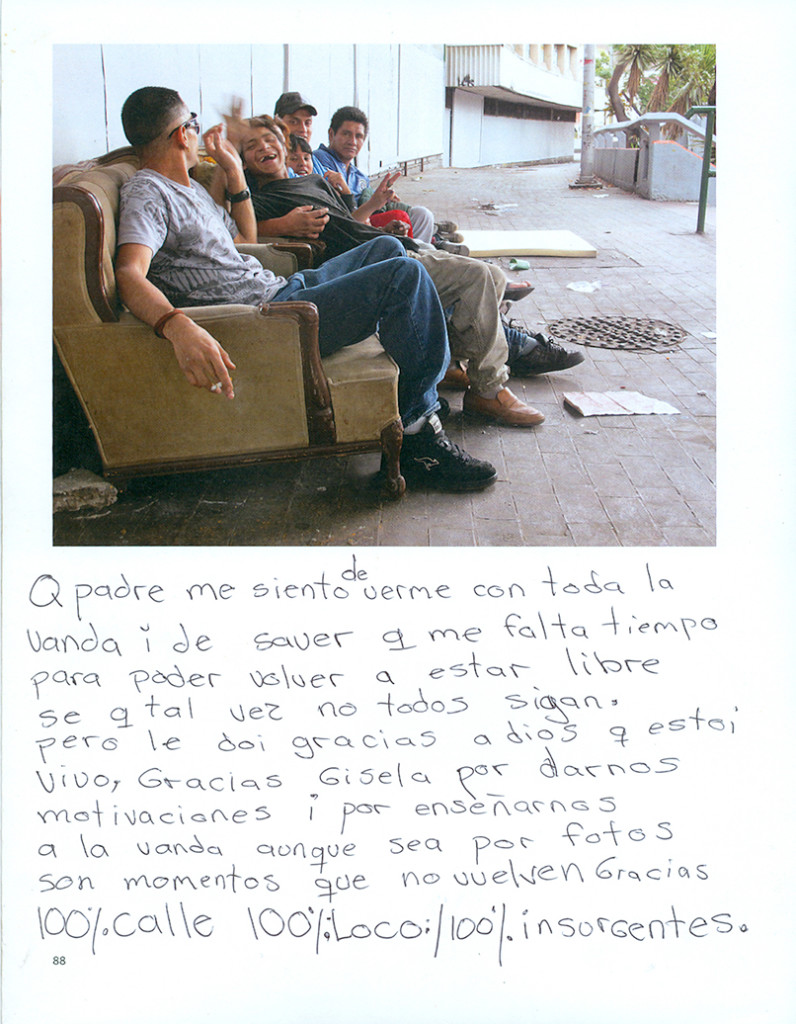 Q padre me siento de verme con toda la
vanda i de saver q me falta tiempo
para poder volver a estar libre
se q tal vez no todos sigan.
pero le doi gracias a dios q estoi
vivo, Gracias Gisela por darnos
motivaciones i por enseñarnos
a la vanda aunque sea por fotos
son momentos que no vuelven Gracias
100%.calle 100%.Loco:/100%.insurgentes.
88